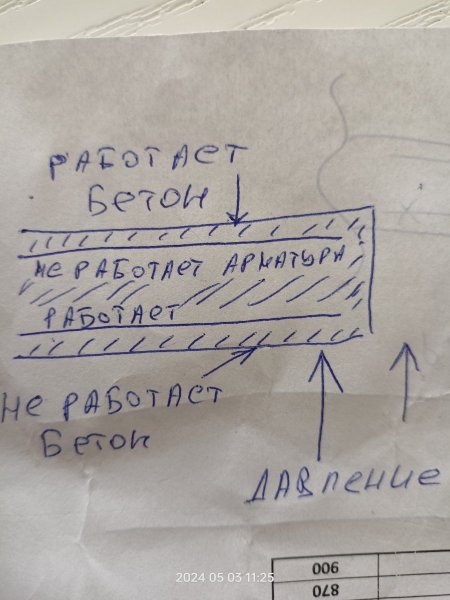 РАБОТАЕТ
БЕТОН
НЕ РАБОТАЕТ АРМАТУРА
РАБОТАЕТ
НЕ РАБОТАЕТ
БЕТОН
ДАВЛЕНИЕ
2024 05 03 11:25
900
870